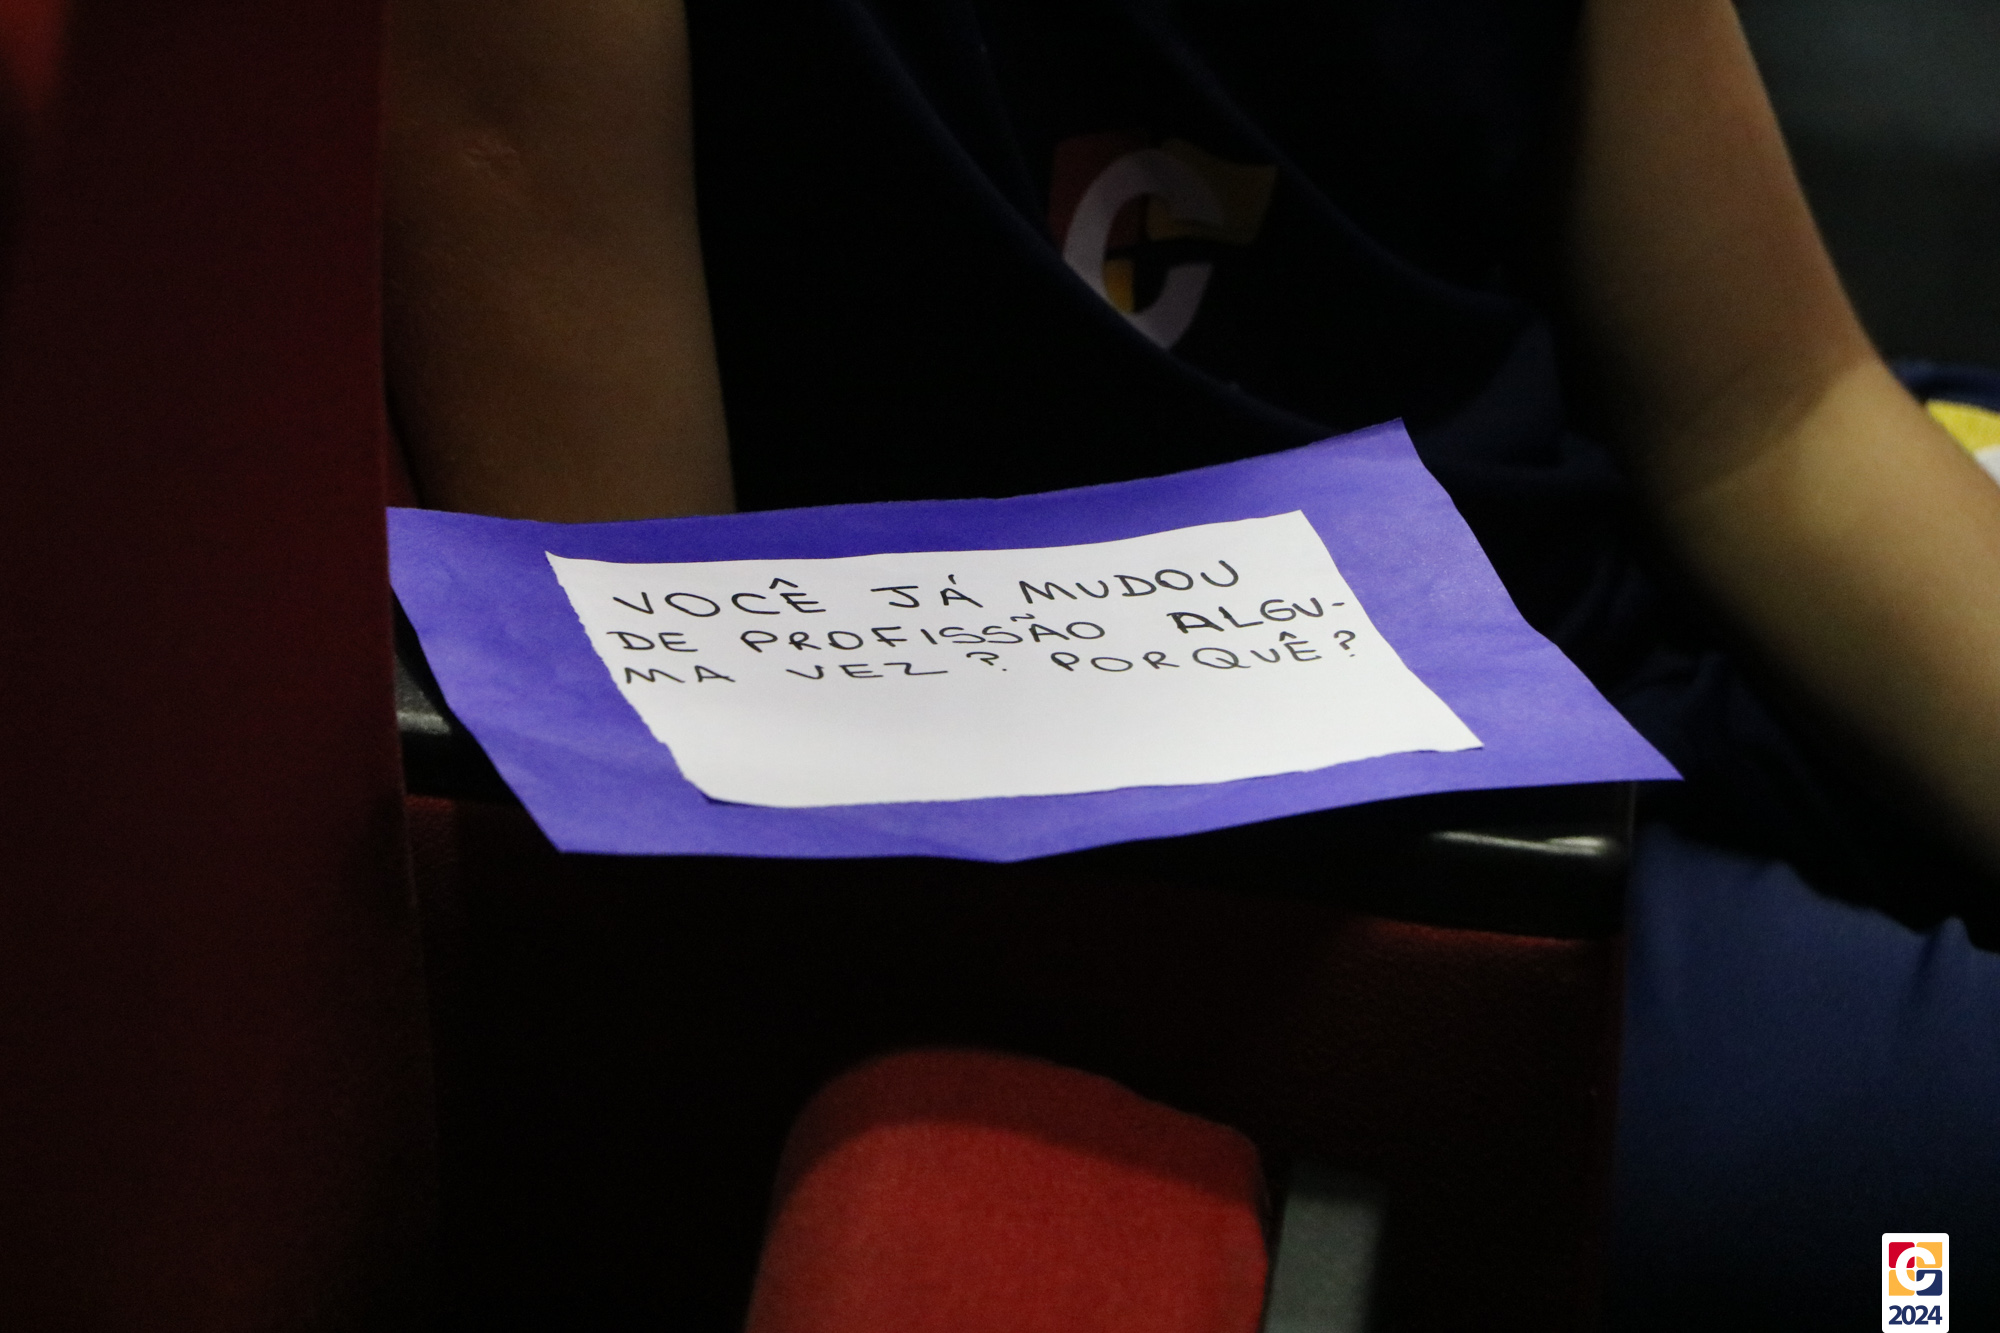 VOCÊ JÁ MUDOU
DE PROFISSÃO ALGU-
MA VEZ? PORQUÊ?
C
2024